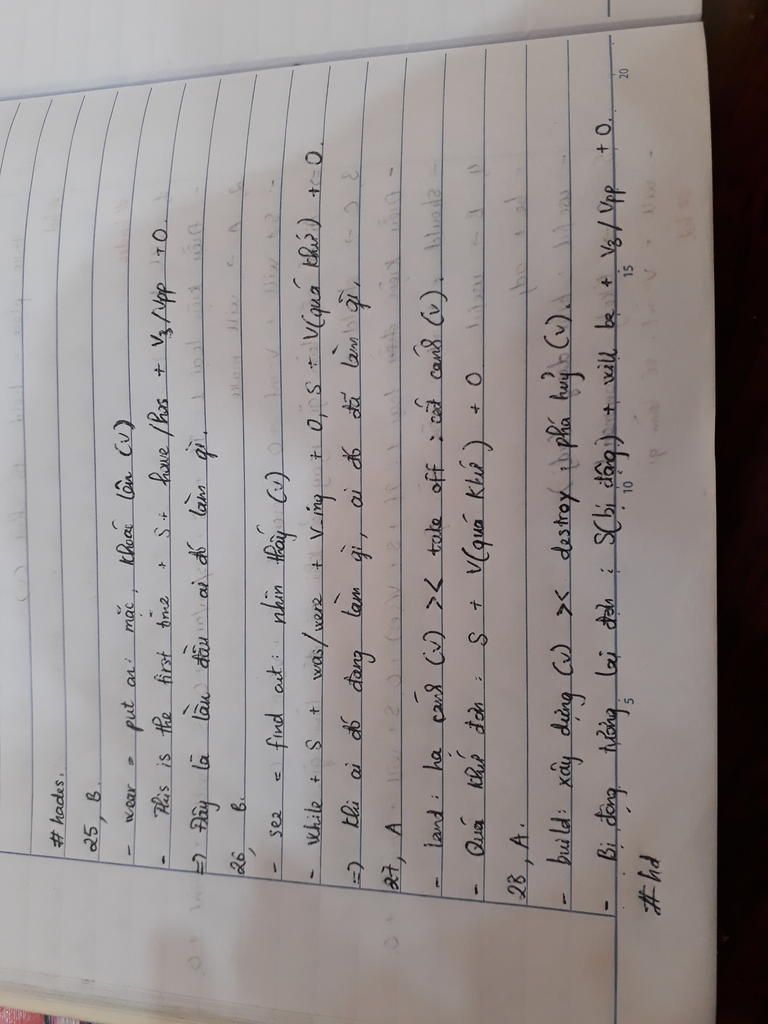 # hades.
25, B.
- wear = put on: mặc, khoác lên (v)
- This is the first time + S + have/has + V3/Vpp + O.
=> Đây là lần đầu ai đó làm gì.
26, B.
- see = find out: nhìn thấy (v)
- While + S + was/were + V-ing + O, S + V(quá khứ) + O.
=> Khi ai đó đang làm gì, ai đó đã làm gì.
27, A
- land: hạ cánh (v) >< take off: cất cánh (v).
- Quá khứ đơn: S + V(quá khứ) + O
28, A.
- build: xây dựng (v) >< destroy: phá huỷ (v).
- Bị động tương lai đơn: S(bị động) + will be + V3/Vpp + O.
# hd
5 10 15 20